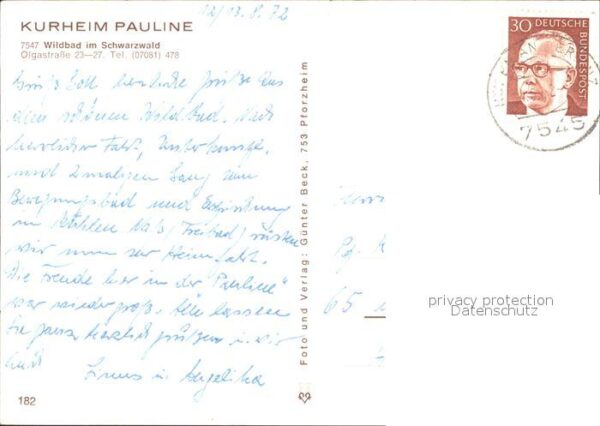 KURHEIM PAULINE
12/13.8.72
7547 Wildbad im Schwarzwald
Olgastraße 23—27. Tel. (07081) 478
Grüß Gott herzliche Grüße aus
dem schönen Wildbad. Nach
herrlicher Fahrt, Unterkunft,
und 2maligen Gang zum
Bewegungsbad und
im kühlen (Freibad) rüsten
wir nun zur Heimfahrt.
Die Freude hier in der "Pauline"
war wieder groß. Alle lassen
Sie ganz herzlich grüßen u. wir
u. Angelika
182
Foto und Verlag: Günter Beck, 753 Pforzheim
30
DEUTSCHE
BUNDESPOST
7545
65
privacy protection
Datenschutz